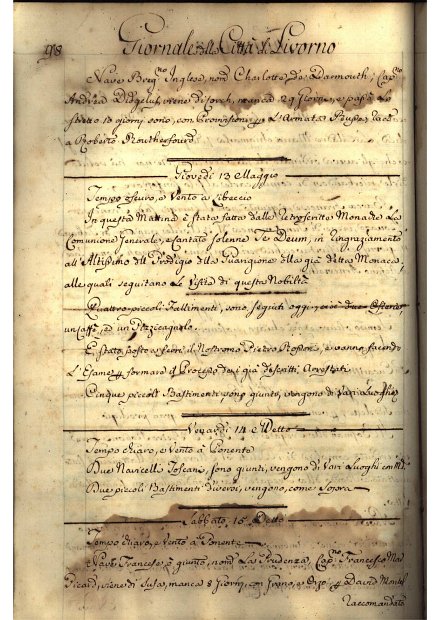 98
Giornale della Città di Livorno
Nave Inglese, nom. Charlotte de Darmouth; Cap.no
Andrea viene di Corch, manca 29 Giorni, e passò lo
stretto 13 giorni sono, con Provvisioni l'Armata
a Roberto Routherfoord
Giovedì 13 Maggio
Tempo scuro, e Vento a Libeccio
In questa Mattina è stato fatto dalle Monache La
Comunione Generale, e Cantato solenne Te Deum, in ringraziamento
all'Altissimo del Prodigio della Guarigione della già detta Monaca,
alle quali seguitano Le Visite di questa Nobiltà
Quattro piccoli Fallimenti, sono seguiti oggi, cioè due
un Caffè, e un Pizzicagnolo
È stato posto a ferri il Nostromo Pietro e vanno facendo
L'Esame formare il Processo de i già descritti Arrestati
Cinque piccoli Bastimenti sono giunti, vengono di Vari Luoghi
Venardì 14 Detto
Tempo chiaro, e Vento a Ponente
Due Navicelle Toscane, sono giunti, vengono di Vari Luoghi
Due piccoli Bastimenti diversi, vengono, come sopra
Sabbato 15 Detto
Tempo chiaro, e Vento a Ponente
Nave Francese, è giunto, nom. La Prudenza, Cap.no Francesco
Picard, viene di Susa, manca 8 Giorni, con Grano, e David
Raccomandato